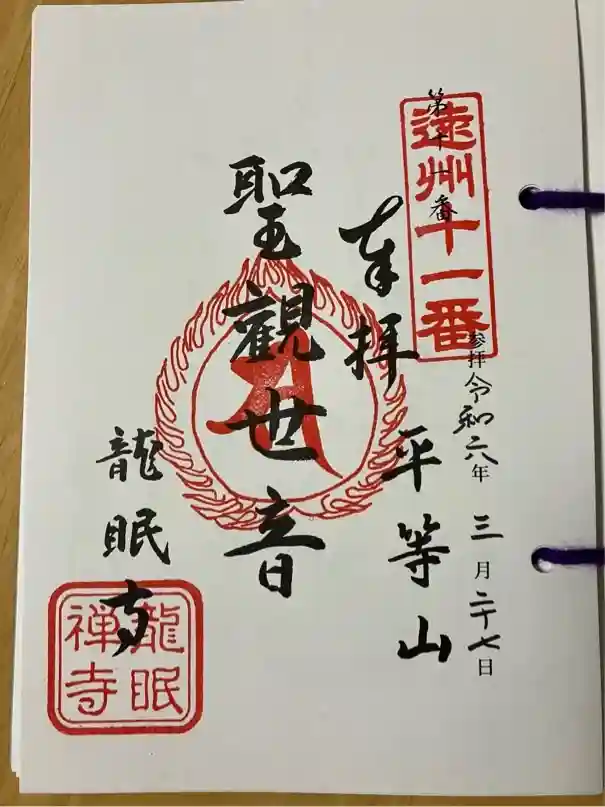 第十一番
遠州十一番
参拝令和六年三月二十七日
奉拝
平等山
聖觀世音
龍眠寺
龍眠
禅寺